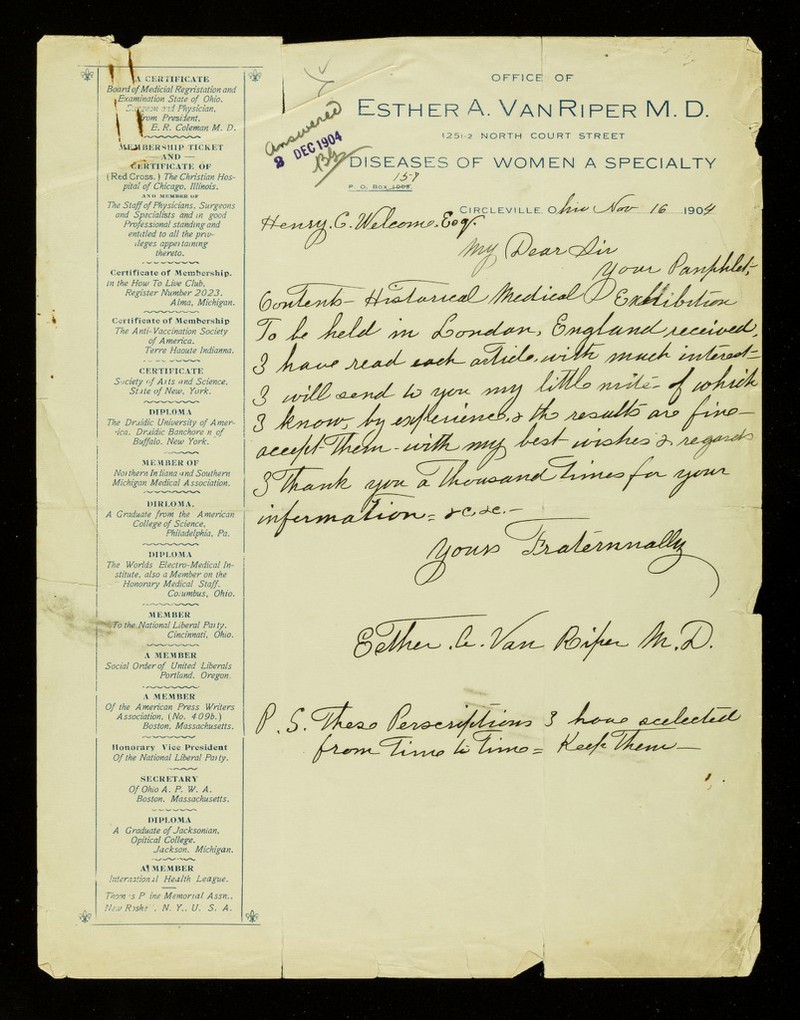 A CERTIFICATE
Board of Medicial Regristation and
Examination State of Ohio.
Surgeon and Physician.
from President,
E. R. Coleman M. D.
MEMBERSHIP TICKET
— AND —
CERTIFICATE OF
(Red Cross.) The Christian Hos-
pital of Chicago, Illinois.
AND MEMBER OF
The Staff of Physicians, Surgeons
and Specialists and in good
Professional standing and
entitled to all the priv-
ileges appertaining
thereto.
Certificate of Membership.
in the How To Live Club.
Register Number 2023.
Alma, Michigan.
Certificate of Membership
The Anti-Vaccination Society
of America.
Terre Haoute Indianna.
CERTIFICATE
Society of Arts and Science,
State of New, York.
DIPLOMA
The Druidic University of Amer-
ica. Druidic Banchore n of
Buffalo, New York.
MEMBER OF
Northern Indiana and Southern
Michigan Medical Association.
DIRLOMA.
A Graduate from the American
College of Science,
Philadelphia, Pa.
DIPLOMA
The Worlds Electro-Medical In-
stitute, also a Member on the
Honorary Medical Staff.
Columbus, Ohio.
MEMBER
To the National Liberal Party.
Cincinnati, Ohio.
A MEMBER
Social Order of United Liberals
Portland, Oregon.
A MEMBER
Of the American Press Writers
Association, (No. 409b.)
Boston, Massachusetts.
Honorary Vice President
Of the National Liberal Party.
SECRETARY
Of Ohio A. P. W. A.
Boston, Massachusetts.
DIPLOMA
A Graduate of Jacksonian,
Opitical College.
Jackson, Michigan.
A MEMBER
International Health League.
Thomas Paine Memorial Assn.,
New Roshe, N. Y., U. S. A.
OFFICE OF
ESTHER A. VANRIPER M. D.
125 1-2 NORTH COURT STREET
DISEASES OF WOMEN A SPECIALTY
157
P. O. Box
Answered
8 DEC 1904
CIRCLEVILLE, Ohio Nov 16 1904
Henry. C. Welcome. Esq.
My Dear Sir
Your Pamphlet,
Contents - Historical Medical Exhibition
To be held in London, England, received,
I have read each article, with much interest=
I will send to you my little mite - of which
I know, by experience, & the results are fine -
accept them - with my best wishes & regards
I Thank you a Thousand Times for your
information = &c &c. -
Yours Fraternnally
Esther. A. Van Riper M. D.
P. S. These Perscriptions I have scelected
from Time to Time = Keep Them -